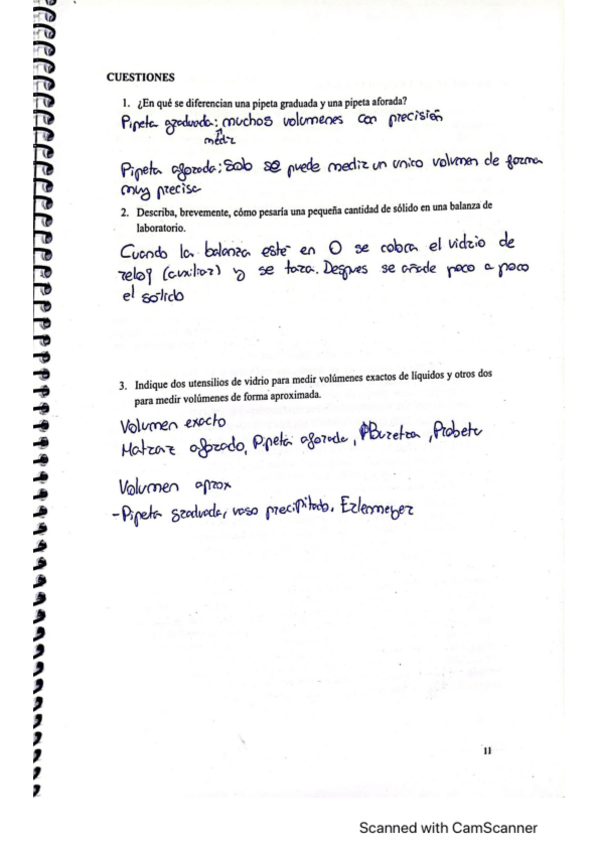 CUESTIONES
1. ¿En qué se diferencian una pipeta graduada y una pipeta aforada?
Pipeta graduada: muchos volumenes con precisión
medir
Pipeta aforada: Solo se puede medir un unico volumen de forma
muy precisa
2. Describa, brevemente, cómo pesaría una pequeña cantidad de sólido en una balanza de
laboratorio.
Cuando la balanza esté en 0 se cobra el vidrio de
reloj (auxiliar) y se tara. Despues se añade poco a poco
el sólido
3. Indique dos utensilios de vidrio para medir volúmenes exactos de líquidos y otros dos
para medir volúmenes de forma aproximada.
Volumen exacto
Matraz aforado, Pipeta aforada, Buretra, Probeta
Volumen aprox
-Pipeta graduada, vaso precipitado, Erlenmeyer
11
Scanned with CamScanner